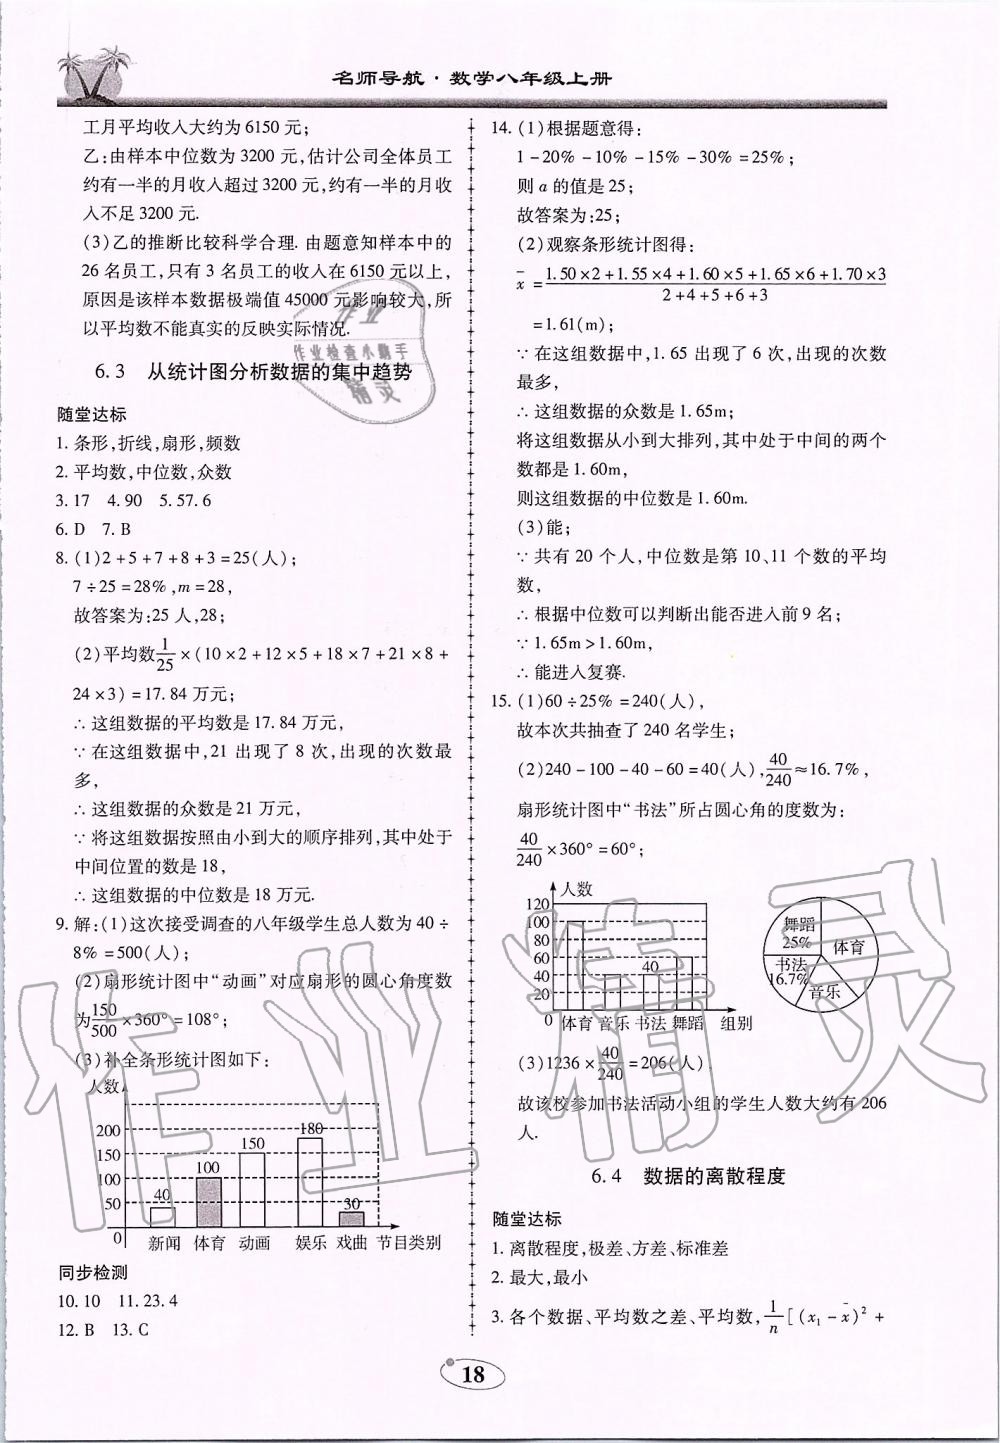 名师导航·数学八年级上册
工月平均收入大约为6150元;
乙:由样本中位数为3200元,估计公司全体员工
约有一半的月收入超过3200元,约有一半的月收
入不足3200元.
(3)乙的推断比较科学合理. 由题意知样本中的
26名员工,只有3名员工的收入在6150元以上,
原因是该样本数据极端值45000元影响较大,所
以平均数不能真实的反映实际情况.
6.3 从统计图分析数据的集中趋势
随堂达标
1. 条形,折线,扇形,频数
2. 平均数,中位数,众数
3.17 4.90 5.57.6
6. D 7. B
8. (1)2+5+7+8+3=25(人);
7÷25=28%,m=28,
故答案为:25人,28;
(2)平均数1/25×(10×2+12×5+18×7+21×8+
24×3)=17.84万元;
∴这组数据的平均数是17.84万元,
∵在这组数据中,21出现了8次,出现的次数最
多,
∴这组数据的众数是21万元,
∵将这组数据按照由小到大的顺序排列,其中处于
中间位置的数是18,
∴这组数据的中位数是18万元.
9. 解:(1)这次接受调查的八年级学生总人数为40÷
8%=500(人);
(2)扇形统计图中“动画”对应扇形的圆心角度数
为150/500×360°=108°;
(3)补全条形统计图如下:
人数
200
150
100
50
0
40
100
150
180
30
新闻 体育 动画 娱乐 戏曲 节目类别
同步检测
10.10 11.23.4
12. B 13. C
14. (1)根据题意得:
1-20%-10%-15%-30%=25%;
则a的值是25;
故答案为:25;
(2)观察条形统计图得:
x̄=(1.50×2+1.55×4+1.60×5+1.65×6+1.70×3)/(2+4+5+6+3)
=1.61(m);
∵在这组数据中,1.65出现了6次,出现的次数
最多,
∴这组数据的众数是1.65m;
将这组数据从小到大排列,其中处于中间的两个
数都是1.60m,
则这组数据的中位数是1.60m.
(3)能;
∵共有20个人,中位数是第10、11个数的平均
数,
∴根据中位数可以判断出能否进入前9名;
∵1.65m>1.60m,
∴能进入复赛.
15. (1)60÷25%=240(人),
故本次共抽查了240名学生;
(2)240-100-40-60=40(人),40/240≈16.7%,
扇形统计图中“书法”所占圆心角的度数为:
40/240×360°=60°;
人数
120
100
80
60
40
20
0
40
体育 音乐 书法 舞蹈 组别
舞蹈
25%
体育
书法
16.7%
音乐
(3)1236×40/240=206(人)
故该校参加书法活动小组的学生人数大约有206
人.
6.4 数据的离散程度
随堂达标
1. 离散程度,极差、方差、标准差
2. 最大,最小
3. 各个数据、平均数之差、平均数,1/n[(x₁-x̄)²+
18
作业
作业检查小助手
精灵
作业精灵